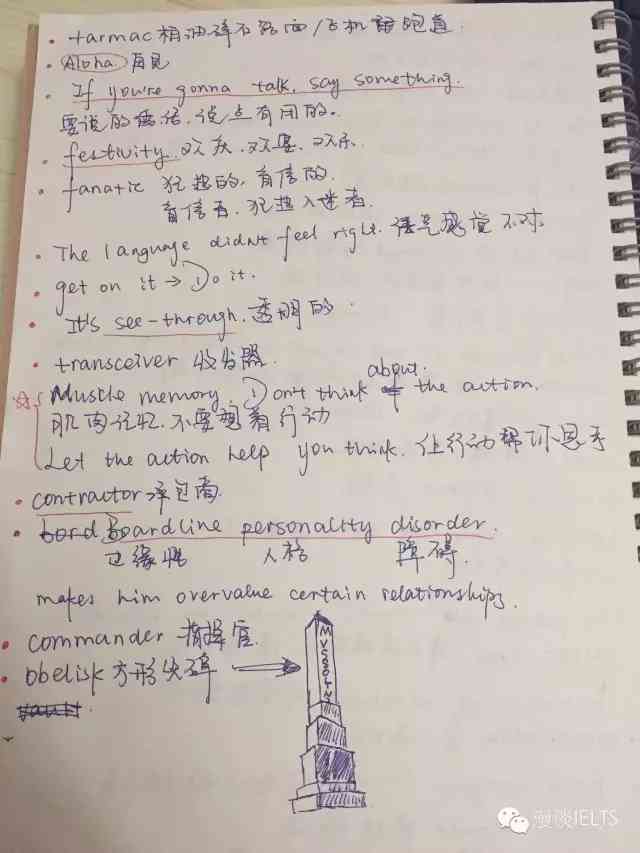 tarmac 柏油碎石路面/飞机跑道
Aloha 再见
If you're gonna talk, say something.
要说的话, 说点有用的。
festivity 欢庆、欢宴、欢乐
fanatic 狂热的, 盲信的
盲信者, 狂热入迷者.
The language didn't feel right. 语气感觉不对
get on it → Do it.
It's see-through. 透明的
transceiver 收发器
about.
Muscle memory Don't think the action.
肌肉记忆, 不要想着行动
Let the action help you think. 让行动帮你思考
contractor 承包商
bord Boardline personality disorder.
边缘性 人格 障碍.
makes him overvalue certain relationships.
commander 指挥官
obelisk 方形尖碑
MVSSOLINI
漫谈IELTS